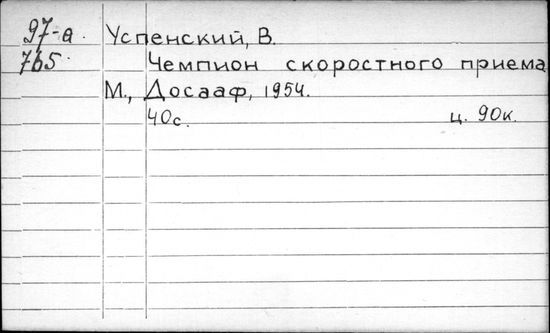 97-а. Успенский, В.
765 Чемпион скоростного приема
М., Досааф, 1954.
40с. ц. 90к.